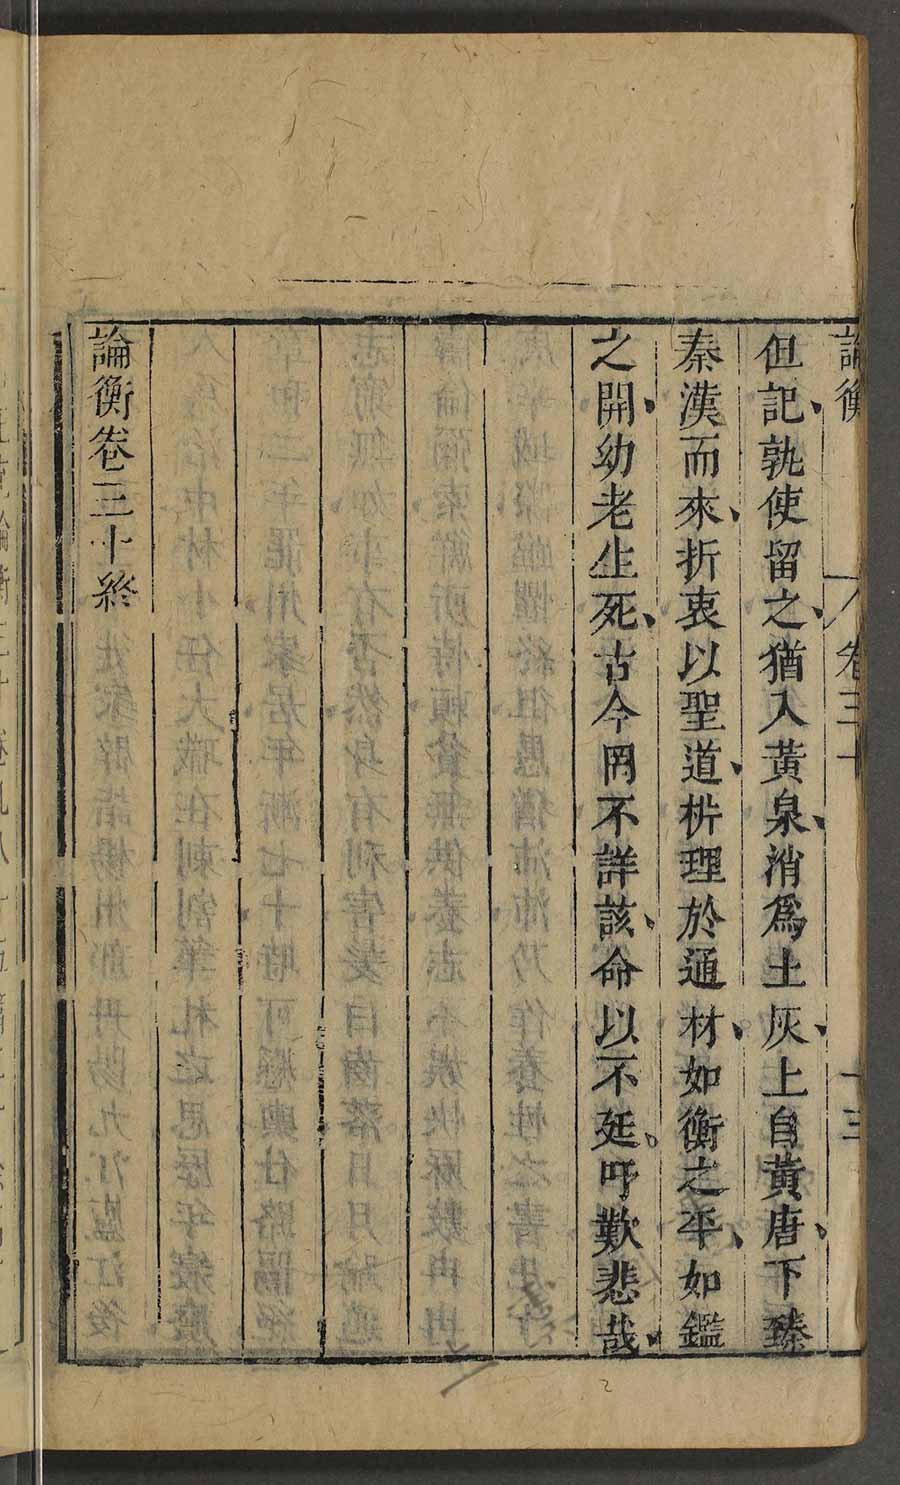 論衡 卷三十 十三
但記孰使留之猶入黃泉消爲土灰上自黃唐下臻
秦漢而來折衷以聖道析理於通材如衡之平如鑑
之開幼老生死古今罔不詳該命以不延吁歎悲哉
論衡卷三十終